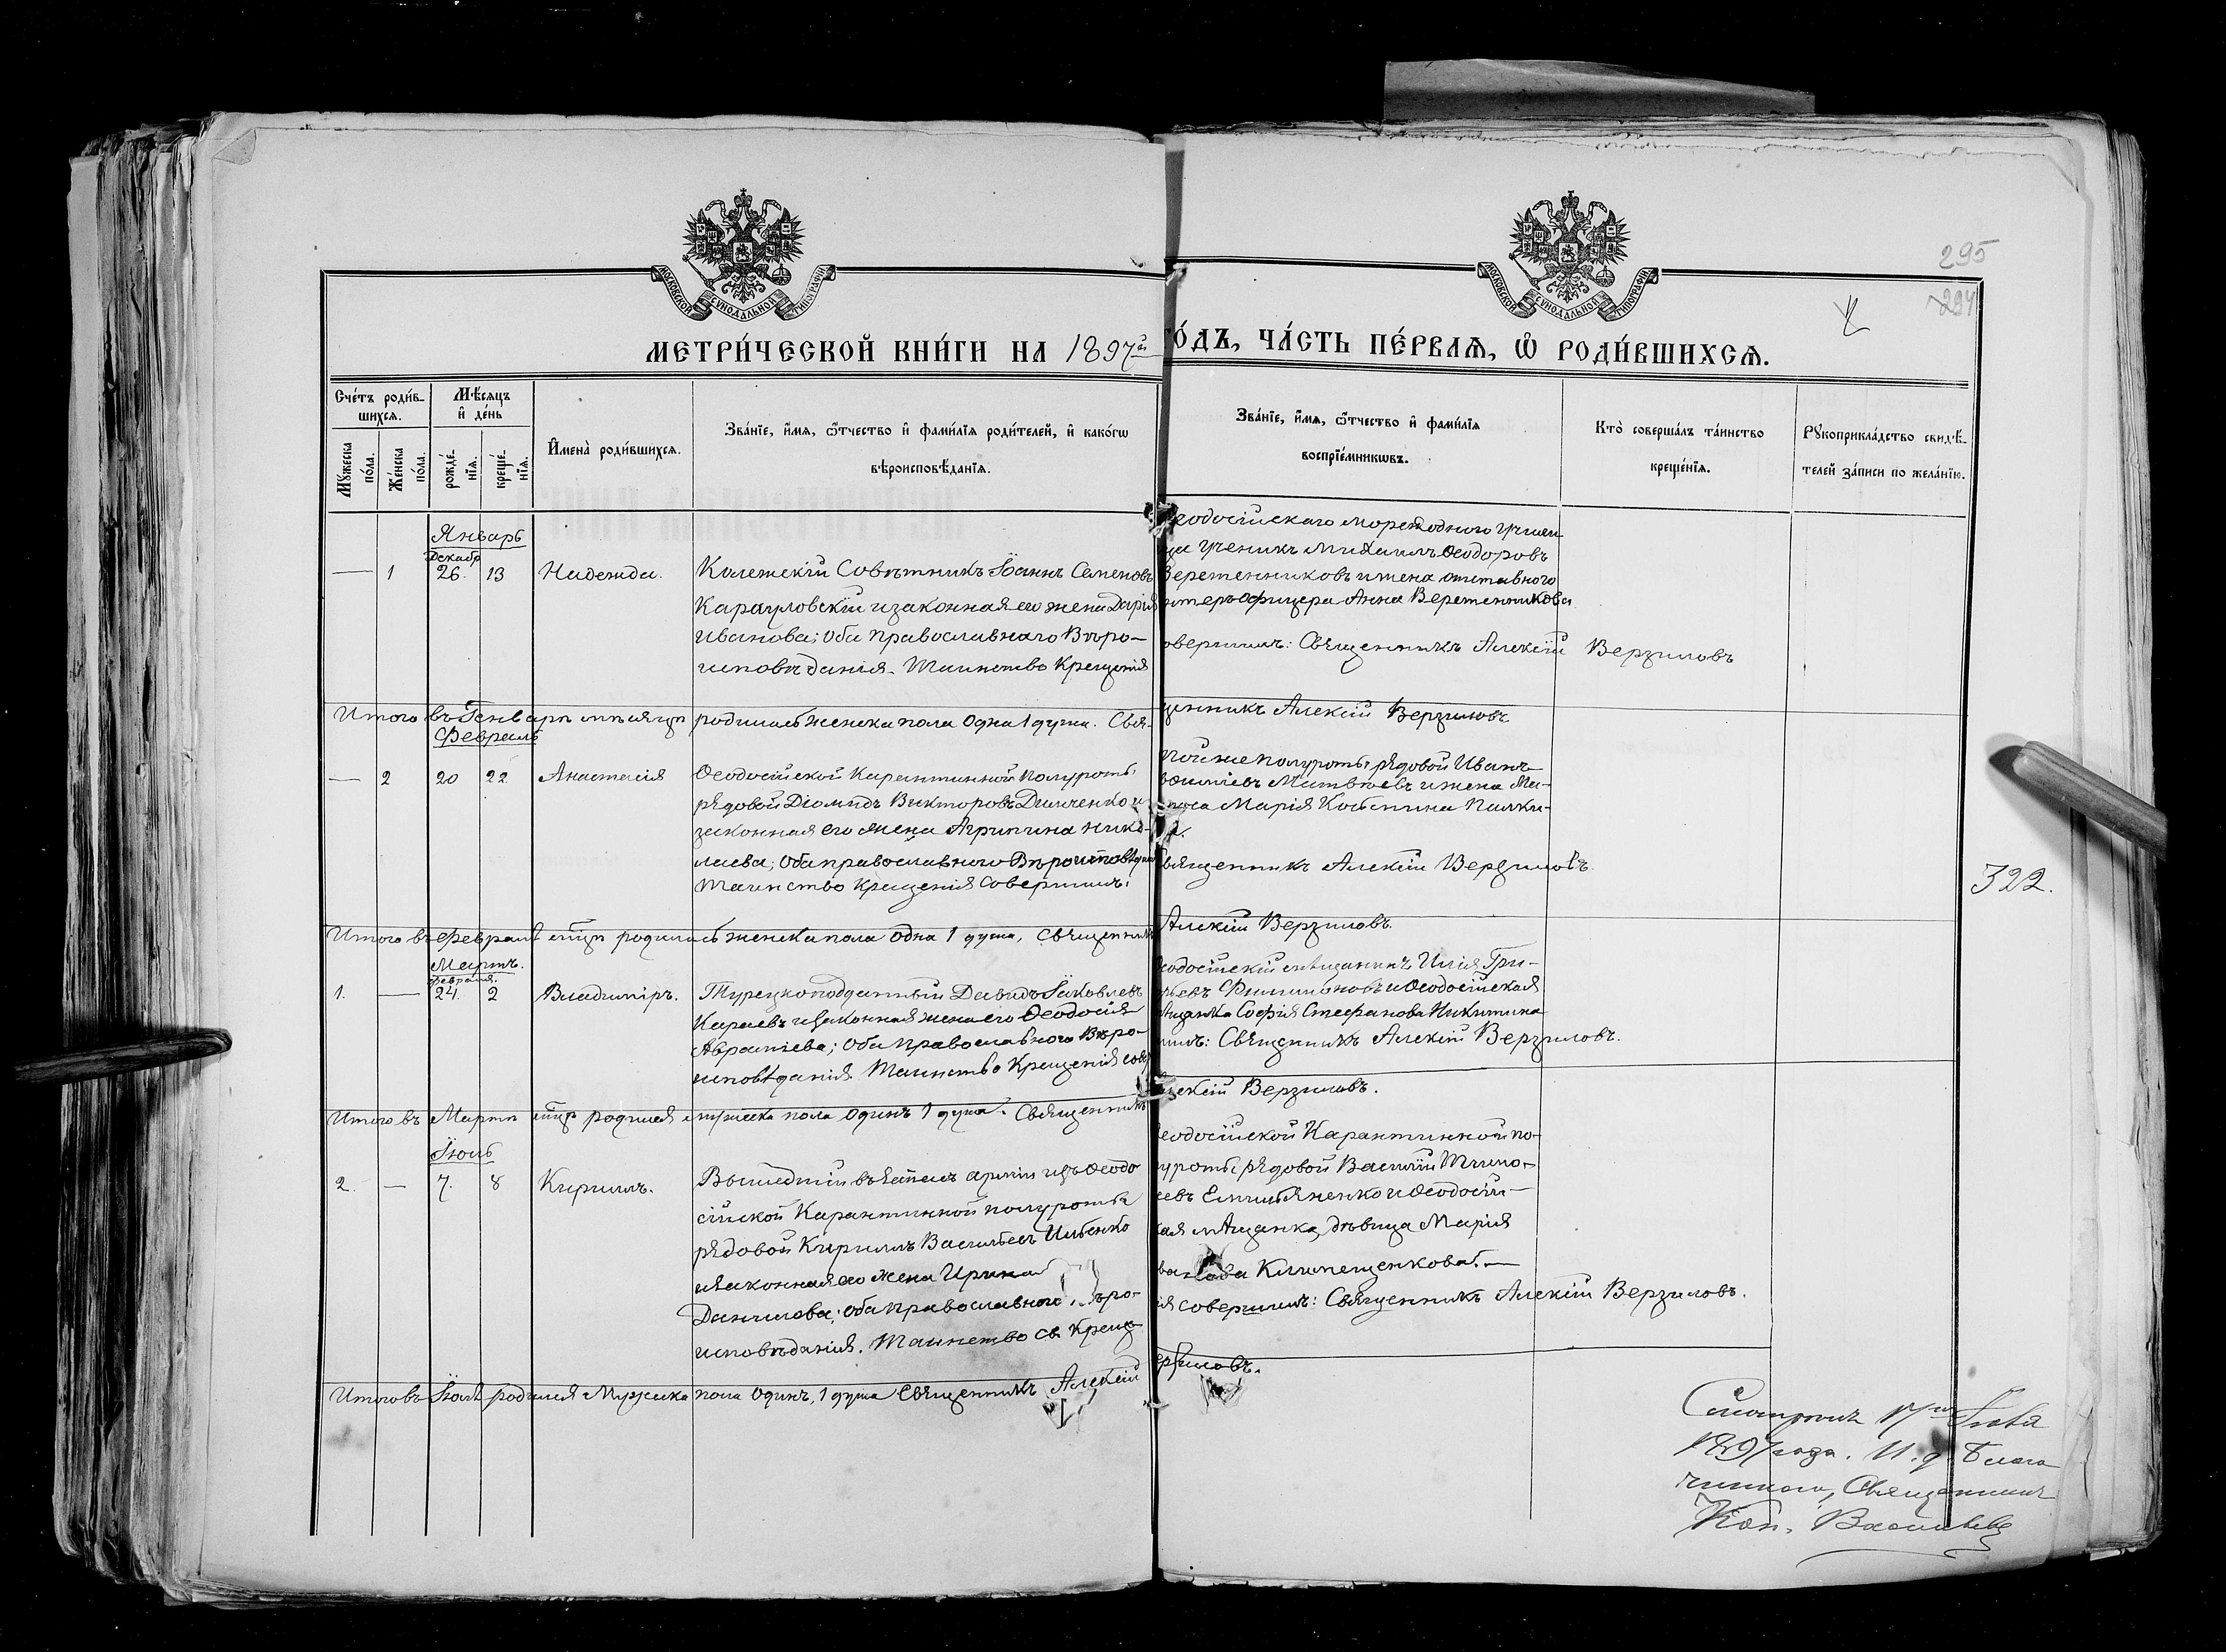 МОСКОВСКОЙ СѴНОДАЛЬНОЙ ТИПОГРАФІИ
МОСКОВСКОЙ СѴНОДАЛЬНОЙ ТИПОГРАФІИ
295
294
МЕТРИ́ЧЕСКОЙ КНИ́ГИ НА 1897й
ГО́ДЪ, ЧА́СТЬ ПЕ́РВАѦ, Ѡ РОДИ́ВШИХСѦ.
Сче́тъ роди́в-
шихсѧ.
Мꙋжеска
по́ла.
Же́нска
по́ла.
Мѣ́сѧцъ
и҆ де́нь
рожде́-
нїѧ.
креще́-
нїѧ.
И҆мена̀ роди́вшихсѧ.
Зва́нїе, и҆́мѧ, ѻ҆́тчество и҆ фами́лїѧ роди́телей, и҆ како́гѡ
вѣроисповѣ́данїѧ.
Зва́нїе, и҆́мѧ, ѻ҆́тчество и҆ фами́лїѧ
воспрїе́мникѡвъ.
Кто̀ соверша́лъ та́инство
креще́нїѧ.
Рꙋкоприкла́дство свидѣ́-
телей за́писи по жела́нїю.
Январь
Декабр
— 1 26. 13 Надежда.
Колежскій Совѣтникъ Іоаннъ Семеновъ
Карауловскій и законная его жена Дарія
Иванова; оба православнаго Вѣро-
исповѣданія. Таинство Крещенія
еодосійскаго мореходного училищ-
ща ученикъ Михаилъ Ѳеодоровъ
Веретенниковъ и жена отставного
нтеръ офицера Анна Веретенникова
овершилъ: Священникъ Алексій Верзиловъ
Итого въ Генварѣ мѣсяцѣ родилась женска пола одна 1 душа. Свя-
щенникъ Алексій Верзиловъ
Февраль
— 2 20 22 Анастасія
Ѳеодосійской Карантинной полуроты
рядовой Діомидъ Викторовъ Димченко и
законная его жена Агрипина Нико-
лаева; оба православного Вѣроисповѣданія
Таинство крещенія совершилъ:
той же полуроты рядовой Иванъ
Матвѣевъ и жена
Марія
Священникъ Алексій Верзиловъ.
Итого въ Февралѣ мцѣ родилась женска пола одна 1 душа, священникъ
Алексій Верзиловъ.
Мартъ.
Февраля.
1. — 24. 2 Владиміръ.
Турецкоподданный Давидъ Іаковлевъ
Караевъ и законная жена его Ѳеодосія
Авраміева; оба православного Вѣро-
исповѣданія. Таинство Крещенія совер
еодосійскій мѣщанинъ Илія Гри-
рьевъ Филимоновъ и Ѳеодосійская
ѣщанка Софія Стефанова Никитина
шилъ: Священникъ Алексій Верзиловъ.
Итого въ Мартѣ мцѣ родился мужеска пола одинъ 1 душа. Священникъ
лексій Верзиловъ.
Іюль
2. — 7. 8 Кирилъ.
Вышедшій въ запасъ арміи изъ Ѳеодо
сійской Карантинной полуроты
рядовой Кирилъ Васильевъ Ильенко
и законная его жена Ирина
Данилова; оба православного Вѣро-
исповѣданія. Таинство св. Крещ
еодосійской Карантинной по-
уроты рядовой Василій Тимо-
еевъ Емильяненко и Ѳеодосій-
кая мѣщанка, дѣвица Марія
Климещенкова. —
ія совершилъ: Священникъ Алексій Верзиловъ.
Итого въ Іюлѣ родился Мужска пола одинъ, 1 душа Священникъ Алексій
ерзиловъ.
322.
Смотрѣлъ 17го
1897 года. И. д. Благо
чиннаго, Священникъ
Кон. Васильевъ